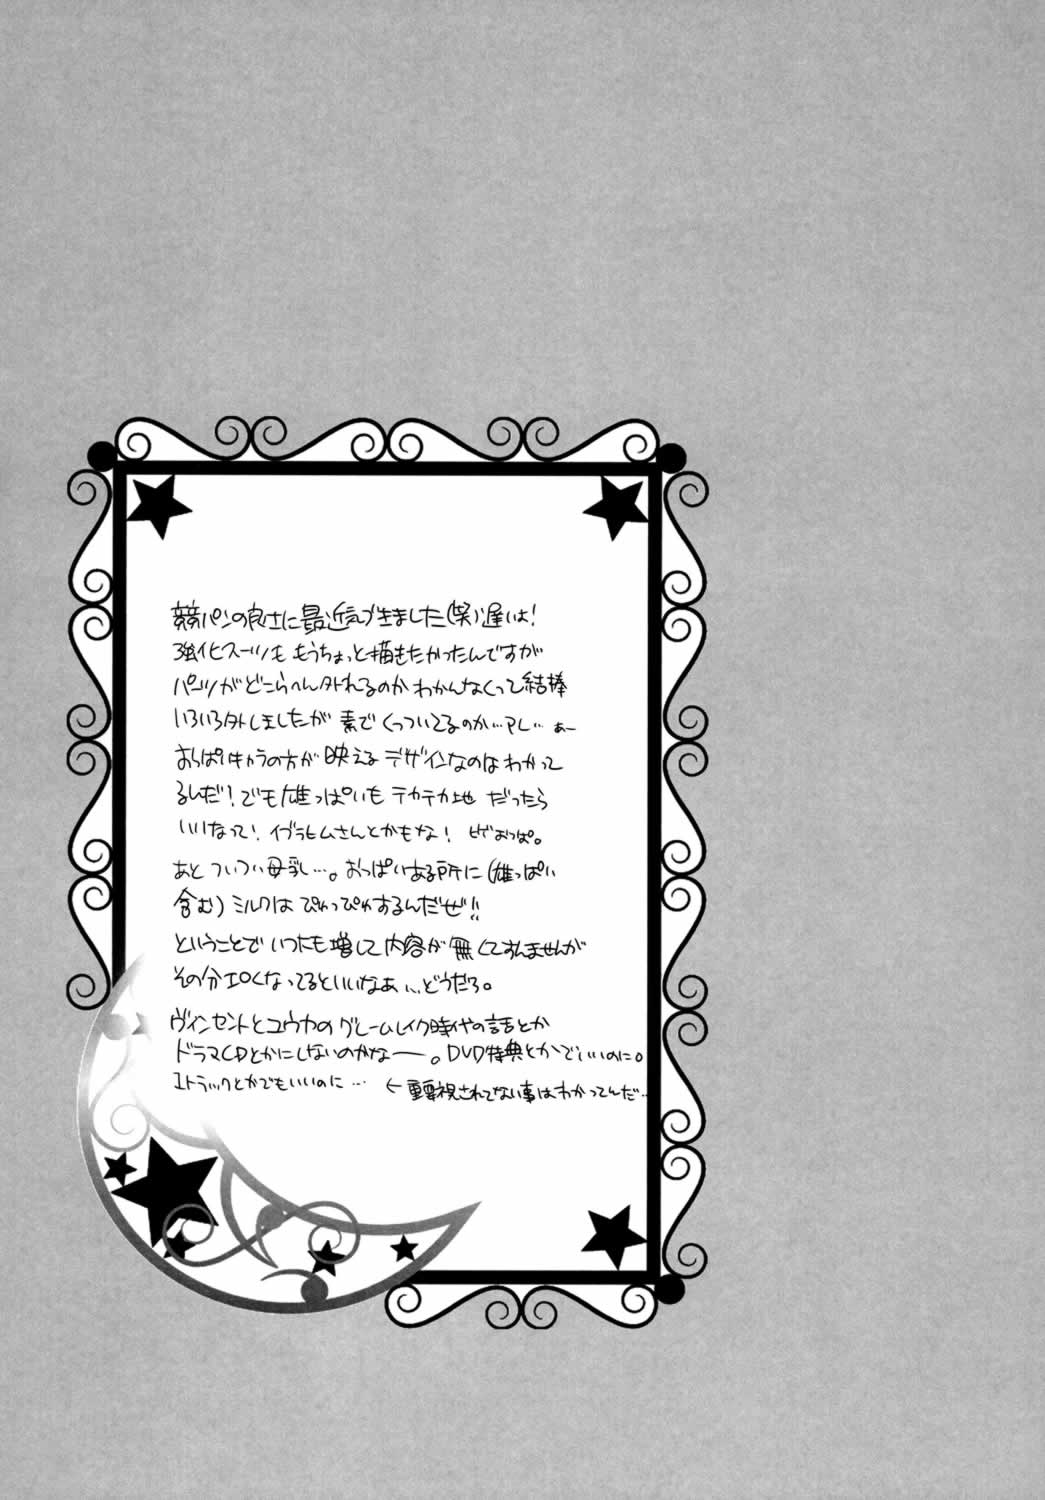 競パンの良さに最近気づきました(笑)遅いよ!
強化スーツも もうちょっと描きたかったんですが
パーツがどこらへん外れるのか わかんなくって結構
いろいろ外しましたが 素でくっついてるのか… あー
おっぱいキャラの方が 映える デザインなのは わかって
るんだ!でも雄っぱいも テカテカ地 だったら
いいなって!イブラヒムさんとかもな!
あと ついつい母乳…。おっぱいある所に(雄っぱい
含む)ミルクは ぴゅっぴゅするんだぜ!!
ということで いつも増して 内容が 無くてすんませんが
その分エロくなってるといいなぁ…どうだろ。
ヴィンセントとユウカの グレームレイク時代の話とか
ドラマCDとかにしないのかなーー。DVD特典とかでいいのに。
1トラックとかでもいいのに… ←重要視されてない事は わかってんだ…